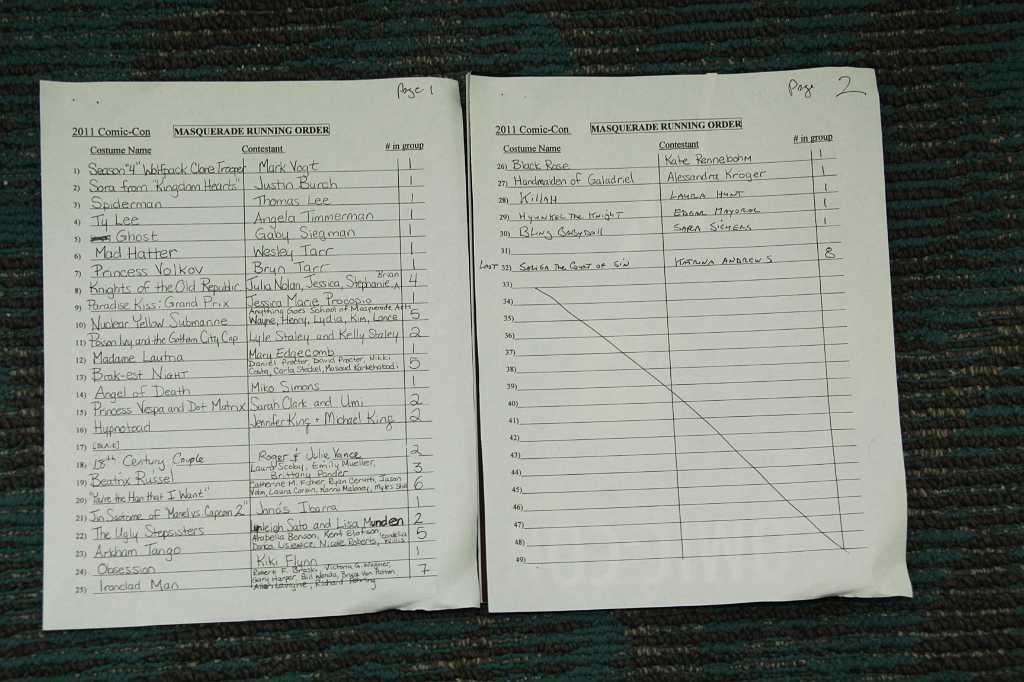 Page 1
2011 Comic-Con MASQUERADE RUNNING ORDER
Costume Name Contestant # in group
1) Season "4" Wolfpack Clone Trooper Mark Vogt 1
2) Sora from "Kingdom Hearts" Justin Burch 1
3) Spiderman Thomas Lee 1
4) Ty Lee Angela Timmerman 1
5) Ghost Gaby Siegman 1
6) Mad Hatter Wesley Tarr 1
7) Princess Volkov Bryn Tarr 1
8) Knights of the Old Republic Julia Nolan, Jessica, Stephanie, Brian 4
9) Paradise Kiss: Grand Prix Jessica Marie Procopio 1
10) Nuclear Yellow Submarine Anything Goes School of Masquerade Arts
Wayne, Henry, Lydia, Kim, Lance 5
11) Poison Ivy and the Gotham City Cop Lyle Staley and Kelly Staley 2
12) Madame Lautria Mary Edgecomb 1
13) Brak-est Night Daniel Proctor, David Proctor, Nikki
Costa, Carla Stockel, 5
14) Angel of Death Miko Simons 1
15) Princess Vespa and Dot Matrix Sarah Clark and Umi 2
16) Hypnotoad Jennifer King + Michael King 2
17)
18) 18th Century Couple Roger & Julie Vance 2
19) Beatrix Russel Laura Scoby, Emily Mueller,
Brittany Ponder 3
20) "You're the Han that I Want" Catherine M. Fisher, Ryan Jason
Laura Corbin, Karina Maloney, Myles 6
21) of "Marvel vs. Capcom 2" Jonás Ibarra 1
22) The Ugly Stepsisters Sato and Lisa Munden 2
23) Arkham Tango Arabella Benson, Kent Elofson,
Nicole Roberts, Willis 5
24) Obsession Kiki Flynn 1
25) Ironclad Man Robert F. Victoria G. Wagner,
Gary Harper, Bill Bryce Van
Richard 7
Page 2
2011 Comic-Con MASQUERADE RUNNING ORDER
Costume Name Contestant # in group
26) Black Rose Kate Pennebohm 1
27) Handmaiden of Galadriel Alessandra Kroger 1
28) Killah Laura Hunt 1
29) Hyunkel the Knight Edgar Mayoral 1
30) Bling Babydoll Sara Siemens 1
31)
Last 32) the Court of Sin Katrina Andrews 8
33)
34)
35)
36)
37)
38)
39)
40)
41)
42)
43)
44)
45)
46)
47)
48)
49)